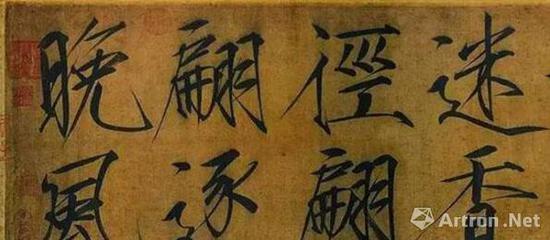 迷香
徑翩
翩逐
晚風
Artron.Net